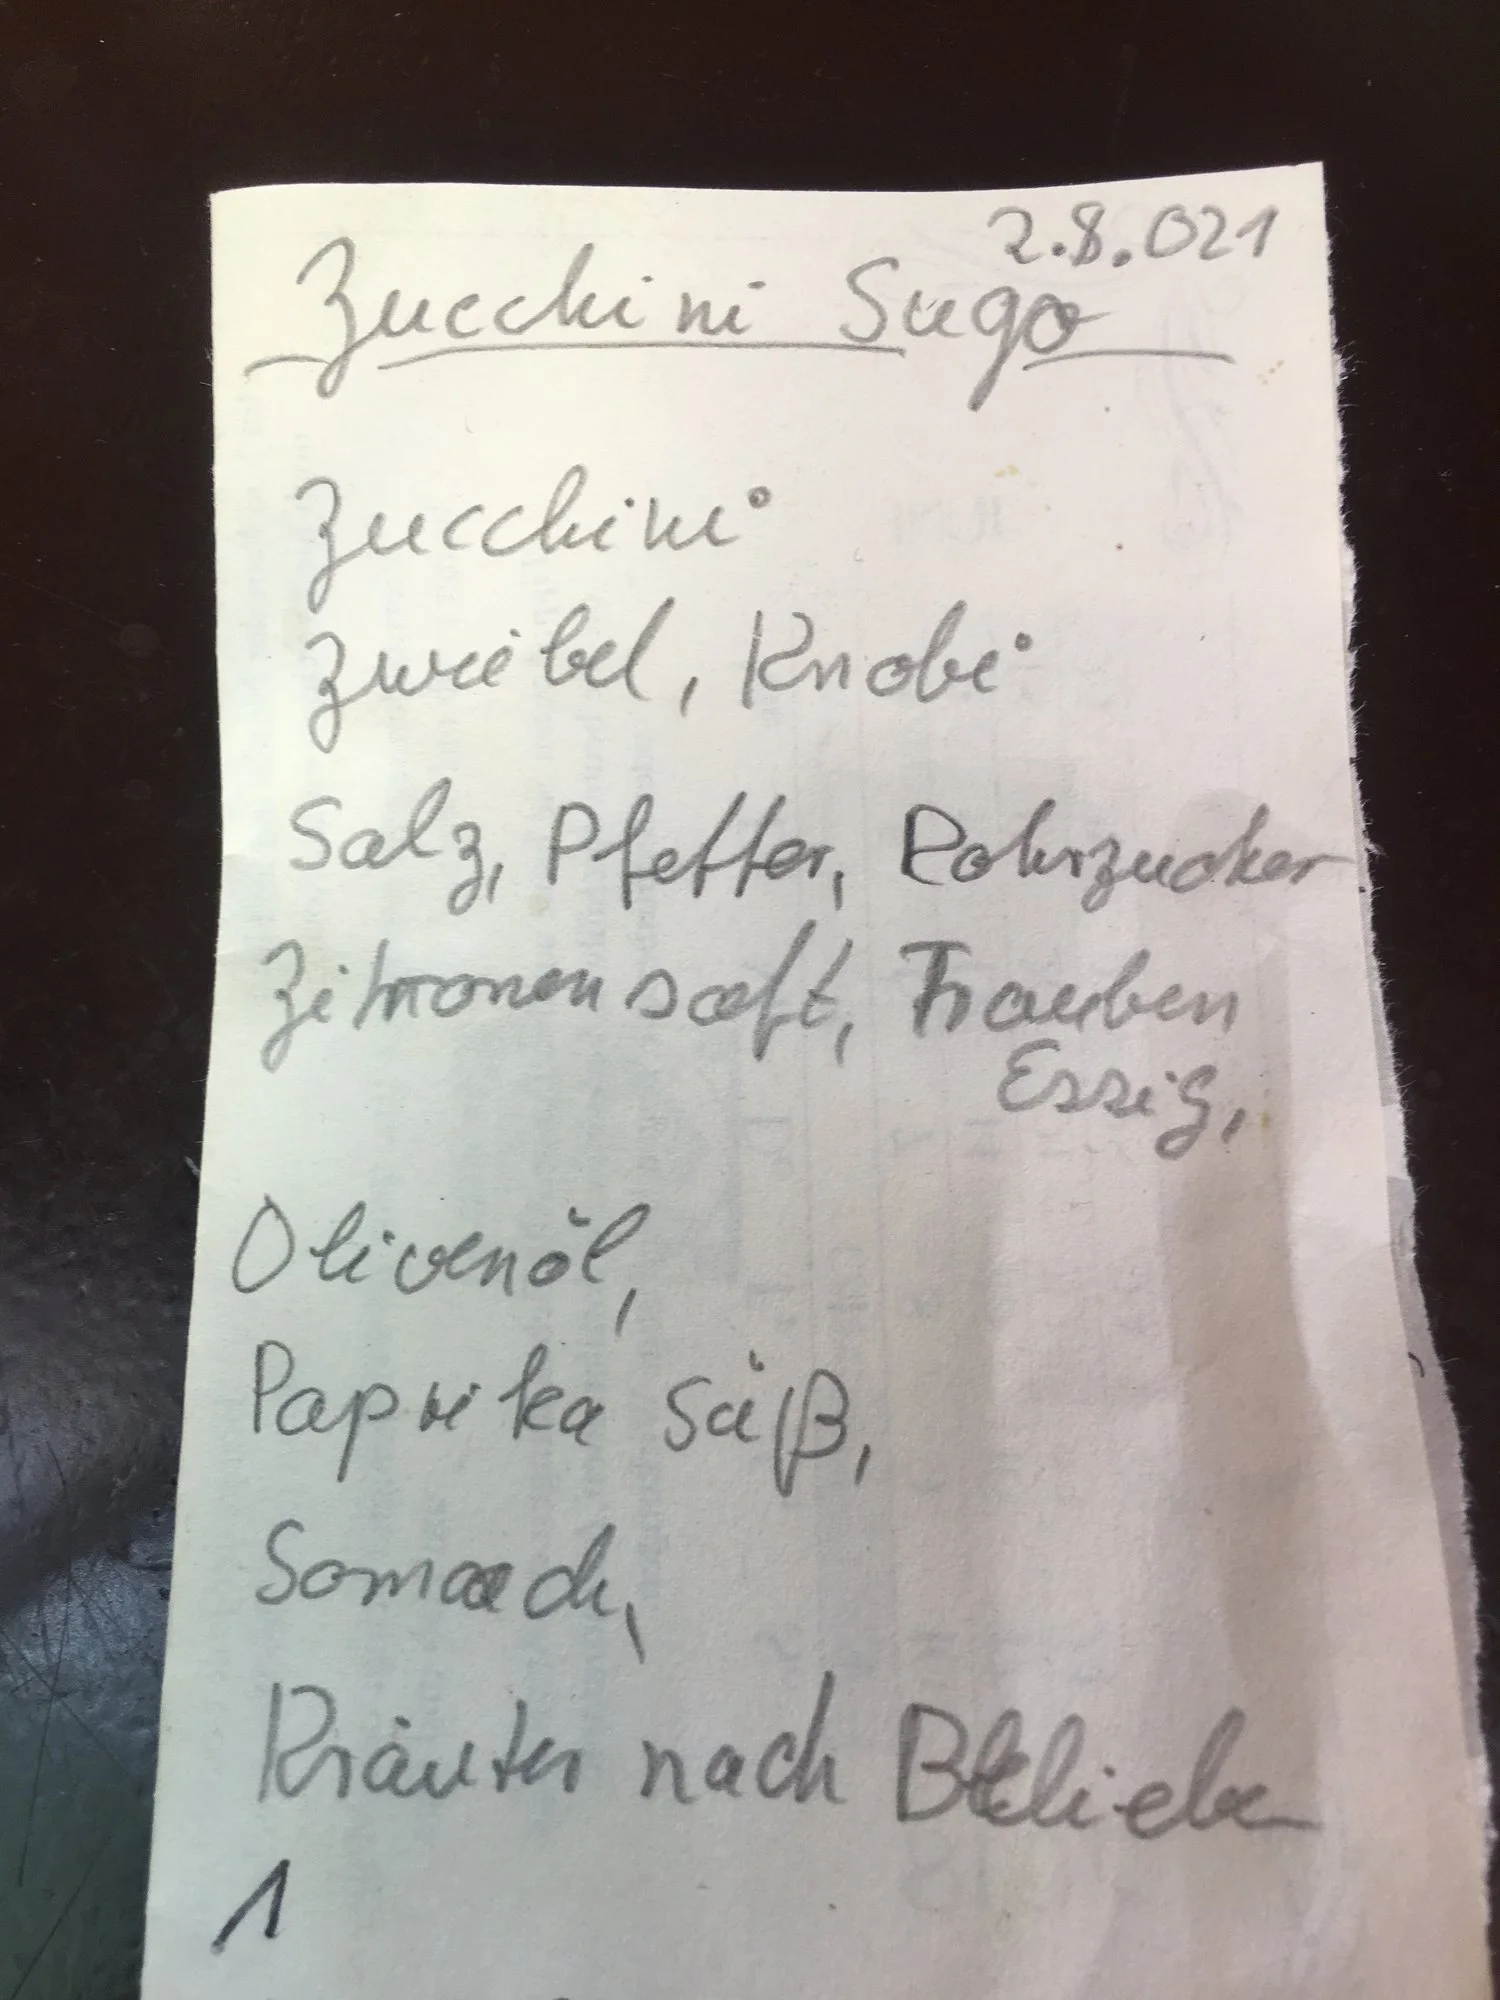 2.8.021
Zucchini Sugo
Zucchini
Zwiebel, Knobi
Salz, Pfeffer, Rohrzucker
Zitronensaft, Trauben
Essig,
Olivenöl,
Paprika süß,
Kräuter nach Belieben
1